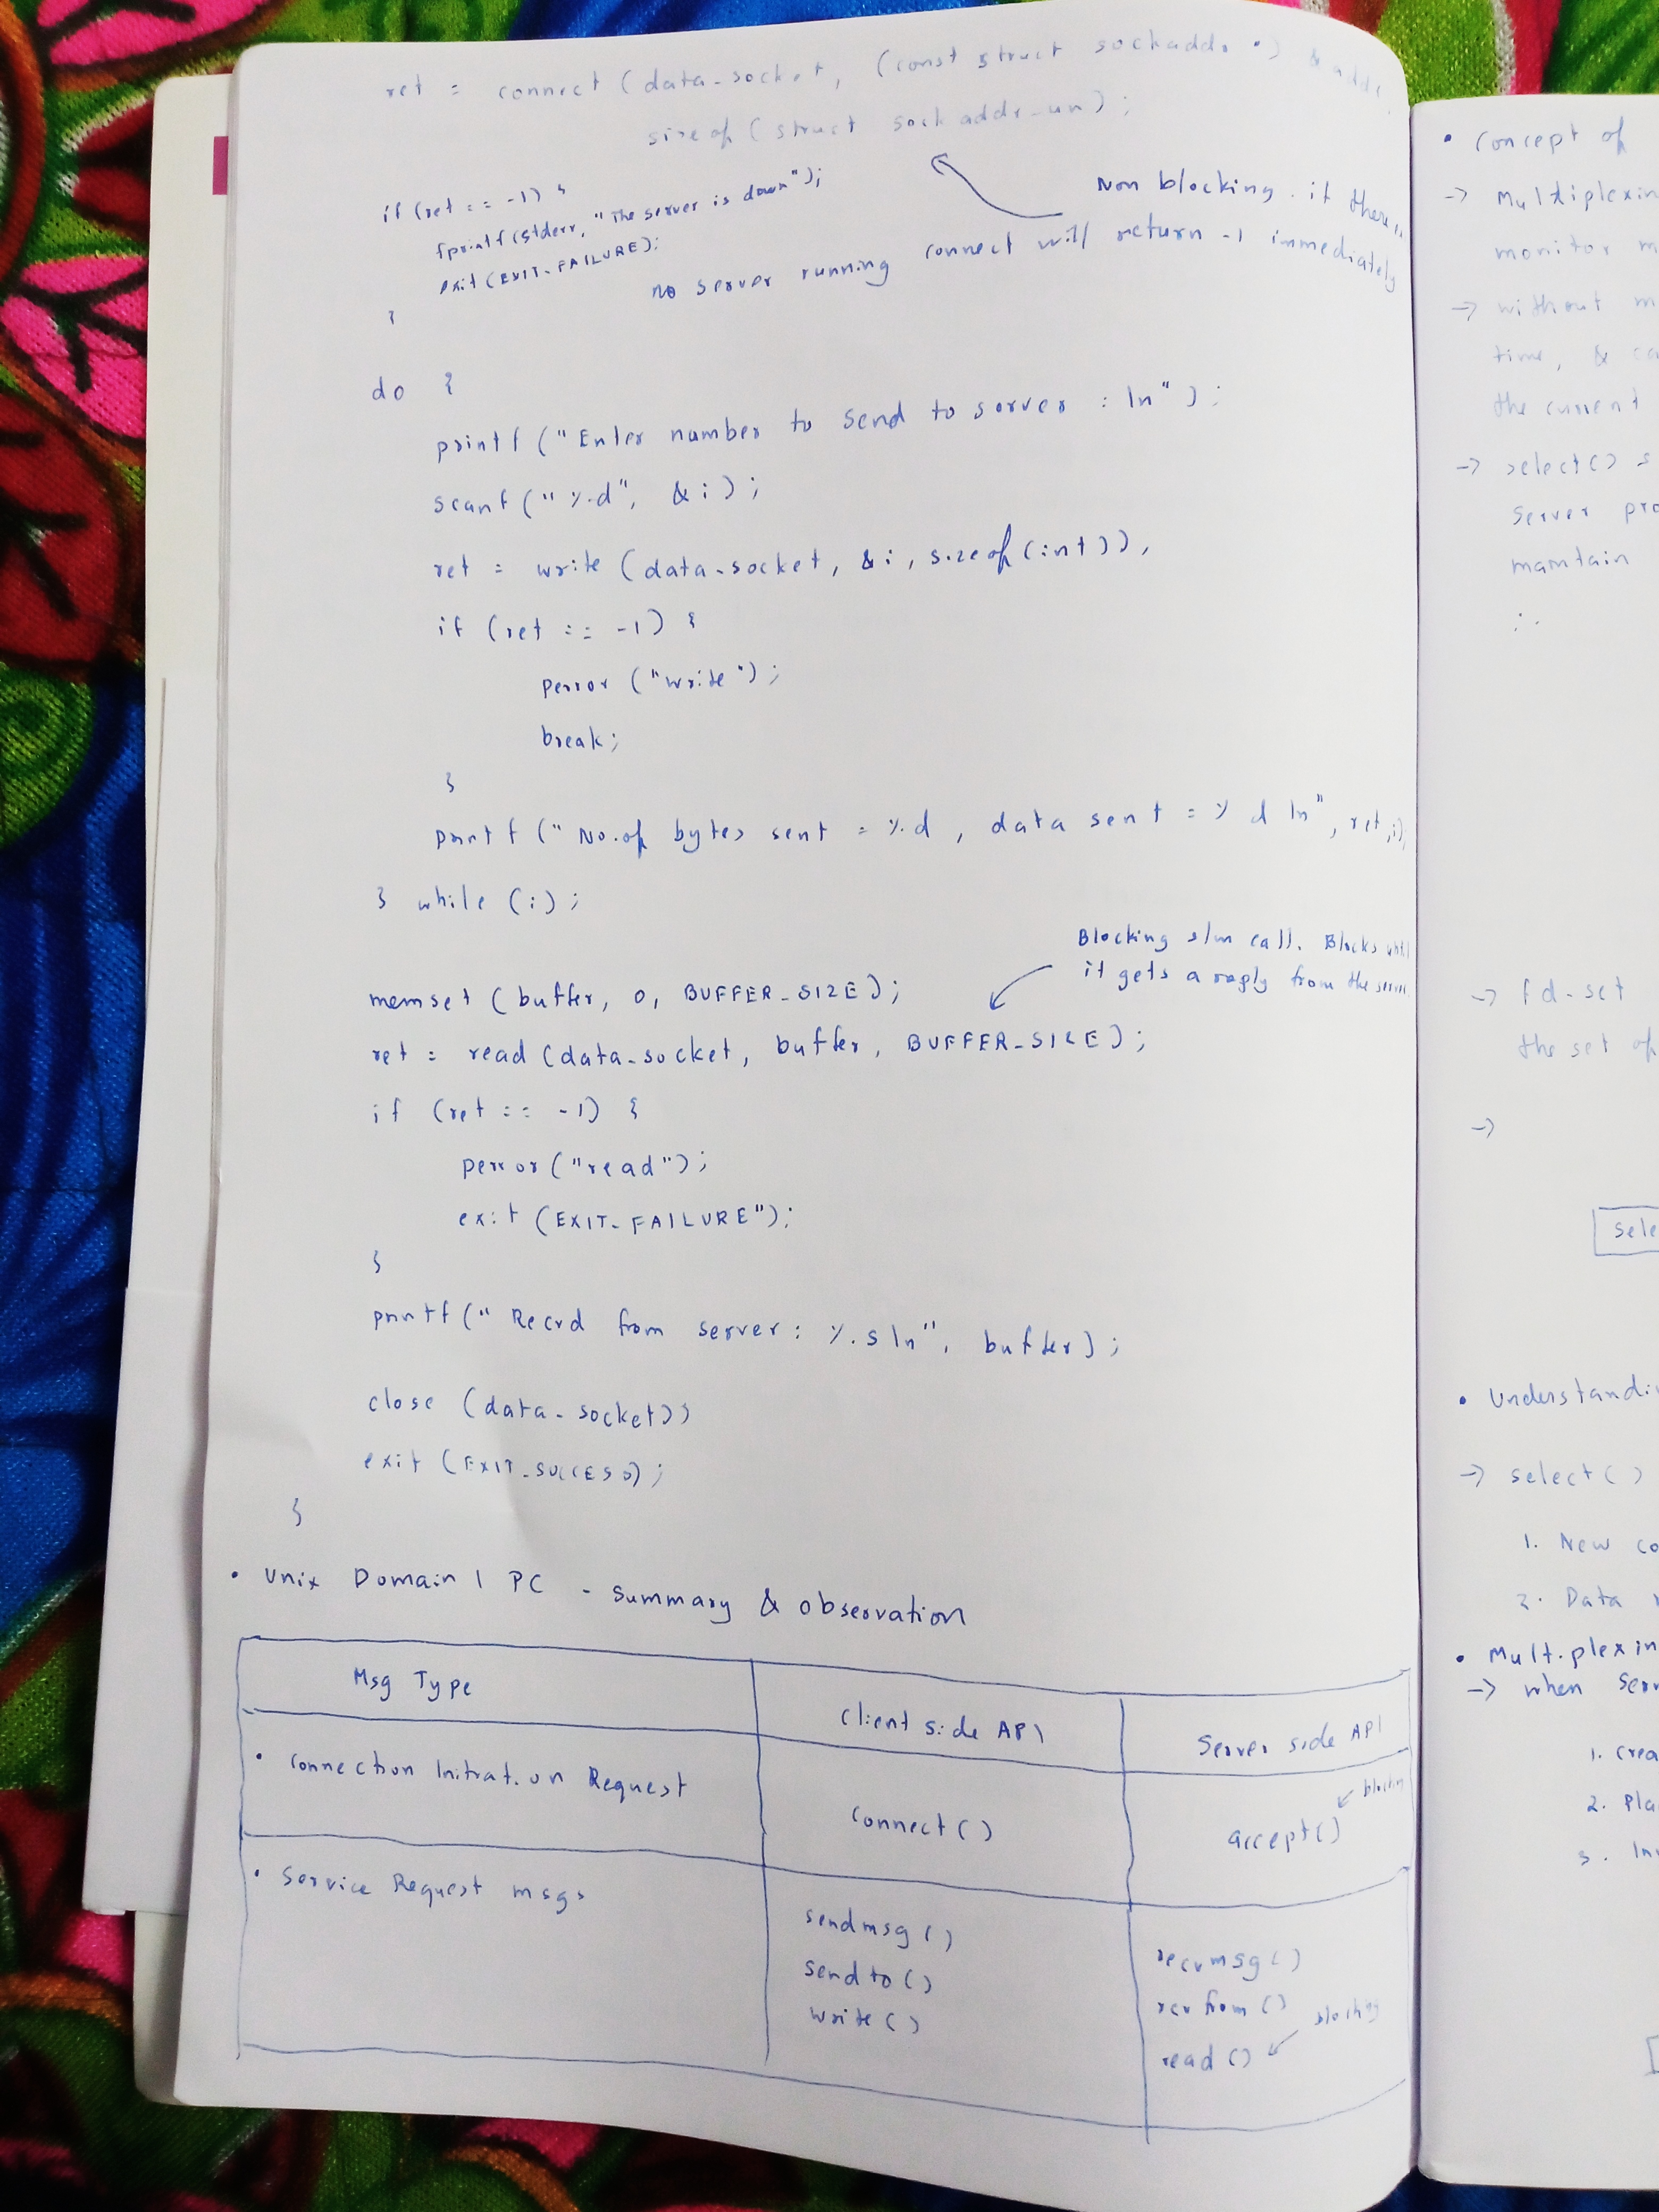 ret = connect (data-socket, (const struct sockaddr *) & addr,
sizeof (struct sockaddr-un);
if (ret == -1) {
fprintf (stderr, "The server is down");
exit (EXIT-FAILURE);
}
Non blocking. if there is
no server running connect will return -1 immediately
do {
printf ("Enter number to send to server : \n");
scanf ("%d", &i);
ret = write (data-socket, &i, sizeof (int));
if (ret == -1) {
perror ("write");
break;
}
printf ("No.of bytes sent = %d, data sent = %d \n", ret, i);
} while (i);
Blocking s/m call. Blocks until
it gets a reply from the server
memset (buffer, 0, BUFFER_SIZE);
ret = read (data-socket, buffer, BUFFER_SIZE);
if (ret == -1) {
perror ("read");
exit (EXIT-FAILURE");
}
printf (" Recvd from server: %s \n", buffer);
close (data-socket);
exit (EXIT_SUCCESS);
}
• Unix Domain IPC - summary & observation
Msg Type
Client side API
Server side API
• Connection Initiation Request
connect ()
accept ()
blocking
• Service Request msgs
sendmsg ()
sendto ()
write ()
recvmsg ()
rcvfrom ()
read ()
blocking
• Concept of
-> Multiplexin
monitor m
-> without m
time, & ca
the current
-> select() s
Server pro
maintain
-> fd-set
the set of
->
sele
• Understandi
-> select ()
1. New co
2. Data
• Multiplexin
-> when serv
1. Crea
2. Pla
3. Inv